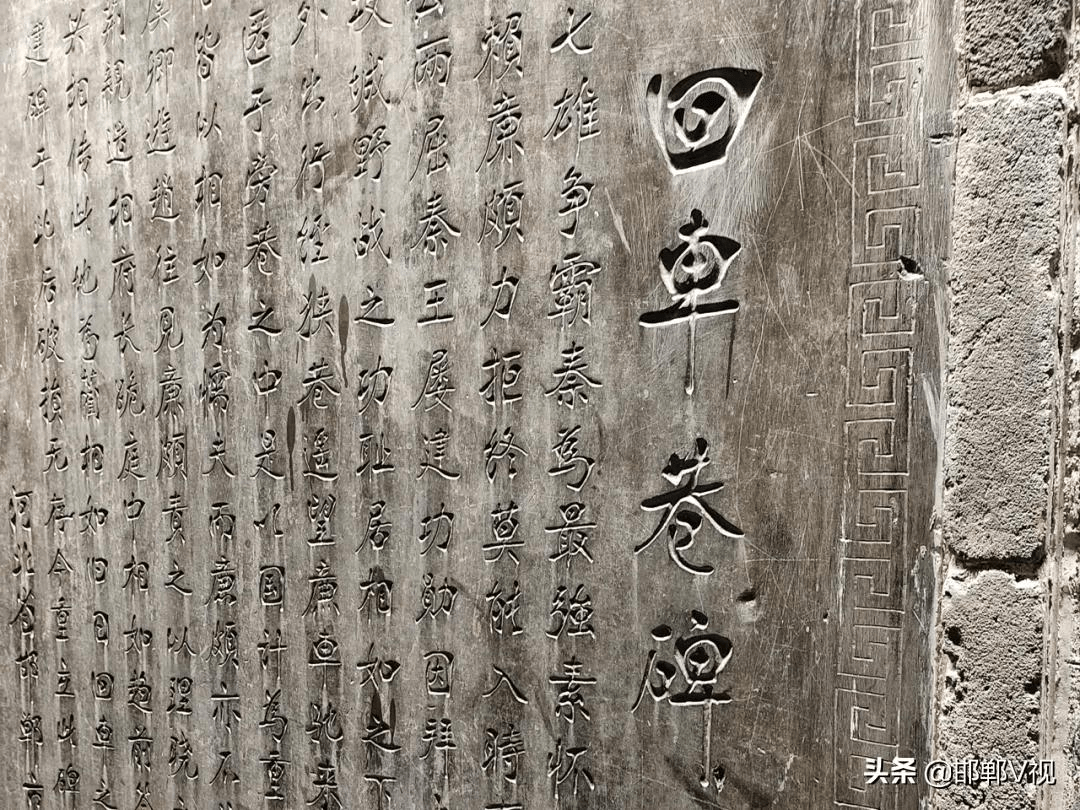 回車巷碑
七雄争霸秦為最強素怀
賴廉頗力拒终莫能入時
两屈秦王屡建功勋因拜
攻城野战之功耻居相如之下
外出行经狭巷遥望廉車驰来
匿于旁巷之中是以国计為重
皆以相如为懦夫而廉頗亦不
虞卿遊趙往见廉頗責之以理晓
荆親造相府长跪庭中相如趋前
相传此地為藺相如旧日回車之
建碑于此后破損无存今重立此碑
河北省邯鄲市
头条 @邯郸V视